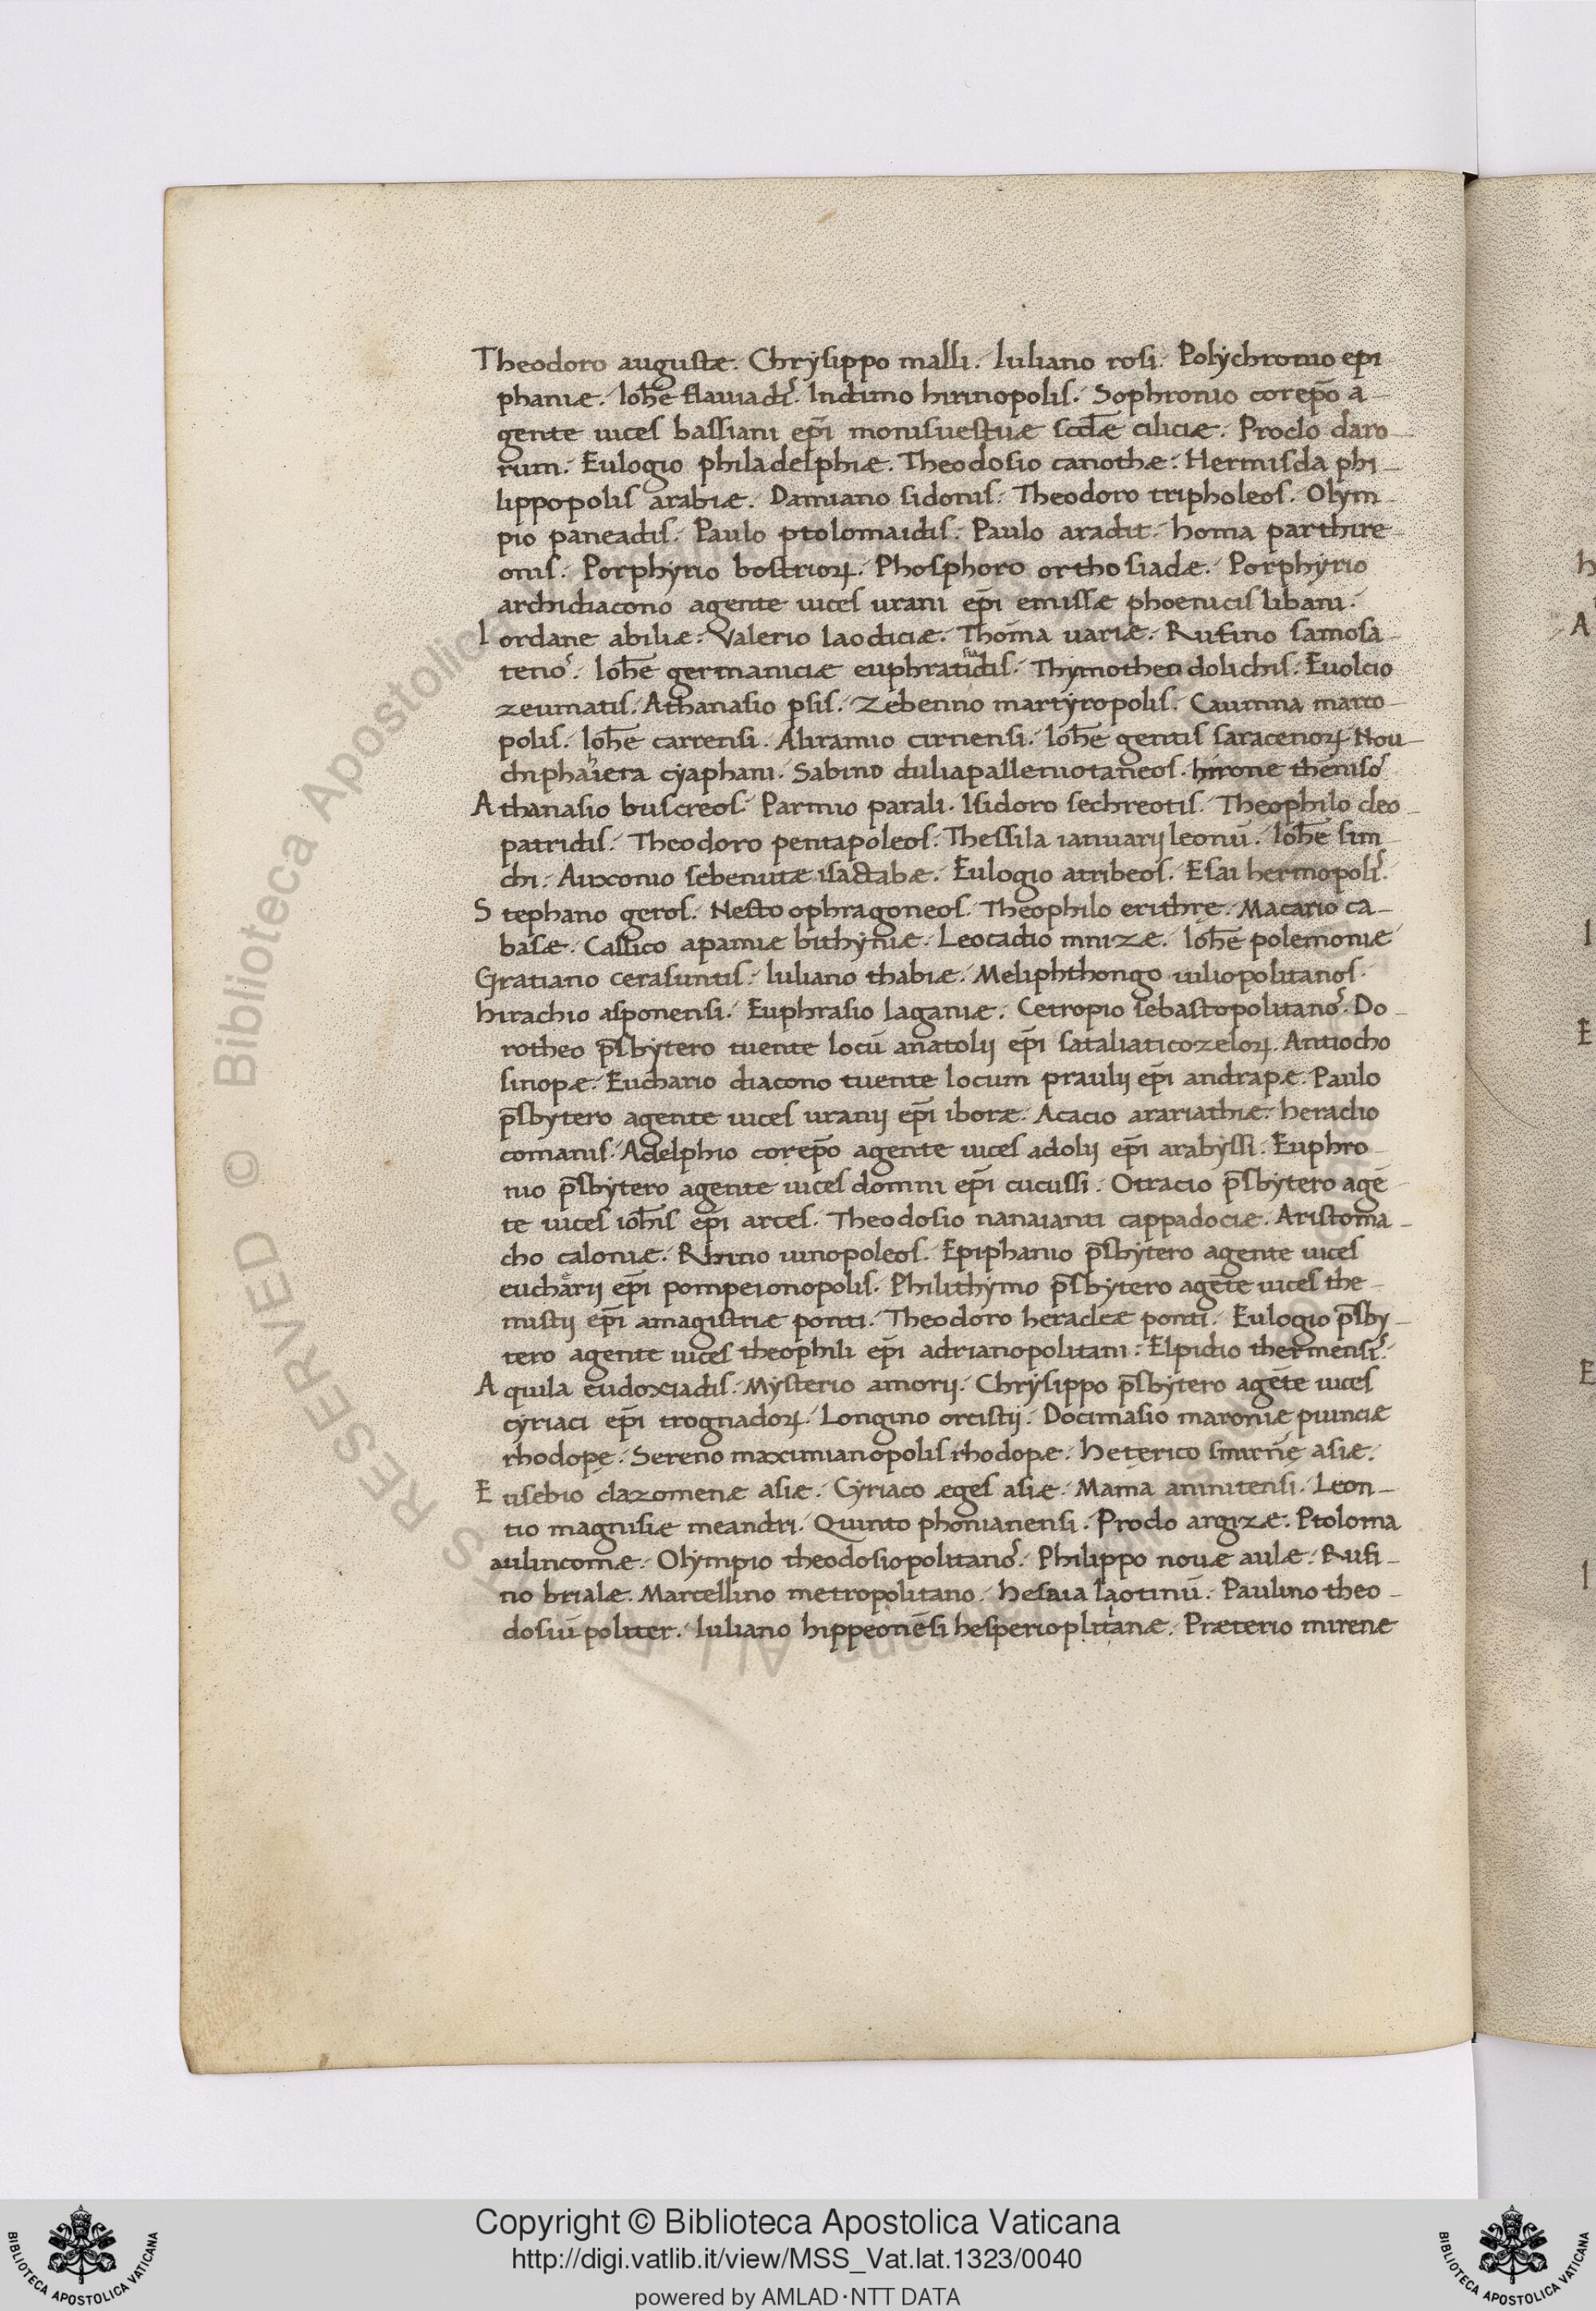 Theodoro augustæ. Chrysippo malli. Iuliano rosi. Polychronio epi
phaniæ. Ioh̅e flauiadi᷒. Indimo hirinopolis. Sophronio corep̅o a-
gente uices bassiani ep̅i monisuestuæ scd̅æ ciliciæ. Proclo daro-
rum. Eulogio philadelphiæ. Theodosio canothæ. Hermisda phi-
lippopolis arabiæ. Damiano sidonis. Theodoro tripholeos. Olym-
pio paneadis. Paulo ptolomaidis. Paulo aradit. homa parthire-
onis. Porphyrio bostrioꝝ. Phosphoro orthosiadæ. Porphyrio
archidiacono agente uices urani ep̅i emissæ phoenicis libani.
Iordane abiliæ. Valerio laodiciæ. Thoma uariæ. Rufino samosa-
teno᷒. Ioh̅e germaniciæ euphratidis. Thymotheo dolichis. Euolcio
zeumatis. Athanasio psis. Zebenno martyropolis. Caiumna marco-
polis. Ioh̅e carrensi. Abramio cirnensi. Ioh̅e gentis saracenoꝝ. Nou-
chiphaiera cyaphani. Sabino duliapalleniotaneos. hirone theniso᷒
Athanasio buscreos. Parmio parali. Isidoro sechreotis. Theophilo cleo-
patridis. Theodoro pentapoleos. Thessila ianuarij leonū. Ioh̅e sim-
chi. Auxonio sebenutæ isactabæ. Eulogio atribeos. Esai hermopoli᷒.
Stephano geros. Nesto ophragoneos. Theophilo erithrę. Macario ca-
basæ. Cassico apamiæ bithyniæ. Leocadio mnizæ. Ioh̅e polemoniæ
Gratiano cerasuntis. Iuliano thabiæ. Meliphthongo iuliopolitanos.
hirachio asponensi. Euphrasio laganiæ. Cetropio sebastopolitano᷒. Do-
rotheo p̅sbytero tuente locū anatolij ep̅i sataliaticozeloꝝ. Antiocho
sinopæ. Euchario diacono tuente locum praulij ep̅i andrapæ. Paulo
p̅sbytero agente uices uranij ep̅i iboræ. Acacio arariathiæ. heraclio
comanis. Adelphio corep̅o agente uices adolij ep̅i arabyssi. Euphro-
nio p̅sbytero agente uices domni ep̅i cucussi. Otracio p̅sbytero agē-
te uices ioh̅is ep̅i arces. Theodosio nanaianti cappadociæ. Aristoma-
cho caloniæ. Rhino iunopoleos. Epiphanio p̅sbytero agente uices
eucharij ep̅i pompeionopolis. Philithymo p̅sbytero agēte uices the-
mistij ep̅i amagistriæ ponti. Theodoro heracleæ ponti. Eulogio p̅sby-
tero agente uices theophili ep̅i adrianopolitani. Elpidio thermensi᷒.
Aquila eudoxiadis. Mysterio amorij. Chrysippo p̅sbytero agēte uices
cyriaci ep̅i trognadoꝝ. Longino orcistij. Docimasio maroniæ piunciæ
rhodopę. Sereno maximianopolis rhodopæ. heterico smirnę asiæ.
Eusebio clazomenæ asiæ. Cyriaco æges asiæ. Mama aninitensi. Leon-
tio magnisiæ meandri. Quinto phonianensi. Proclo argizæ. Ptoloma
aulincomæ. Olympio theodosiopolitano᷒. Philippo nouæ aulæ. Rufi-
no brialæ. Marcellino metropolitano. hesaia laotinū. Paulino theo-
dosiū politer. Iuliano hippeonēsi hesperioplitanæ. Præterio mirenæ
Copyright © Biblioteca Apostolica Vaticana
http://digi.vatlib.it/view/MSS_Vat.lat.1323/0040
powered by AMLAD·NTT DATA